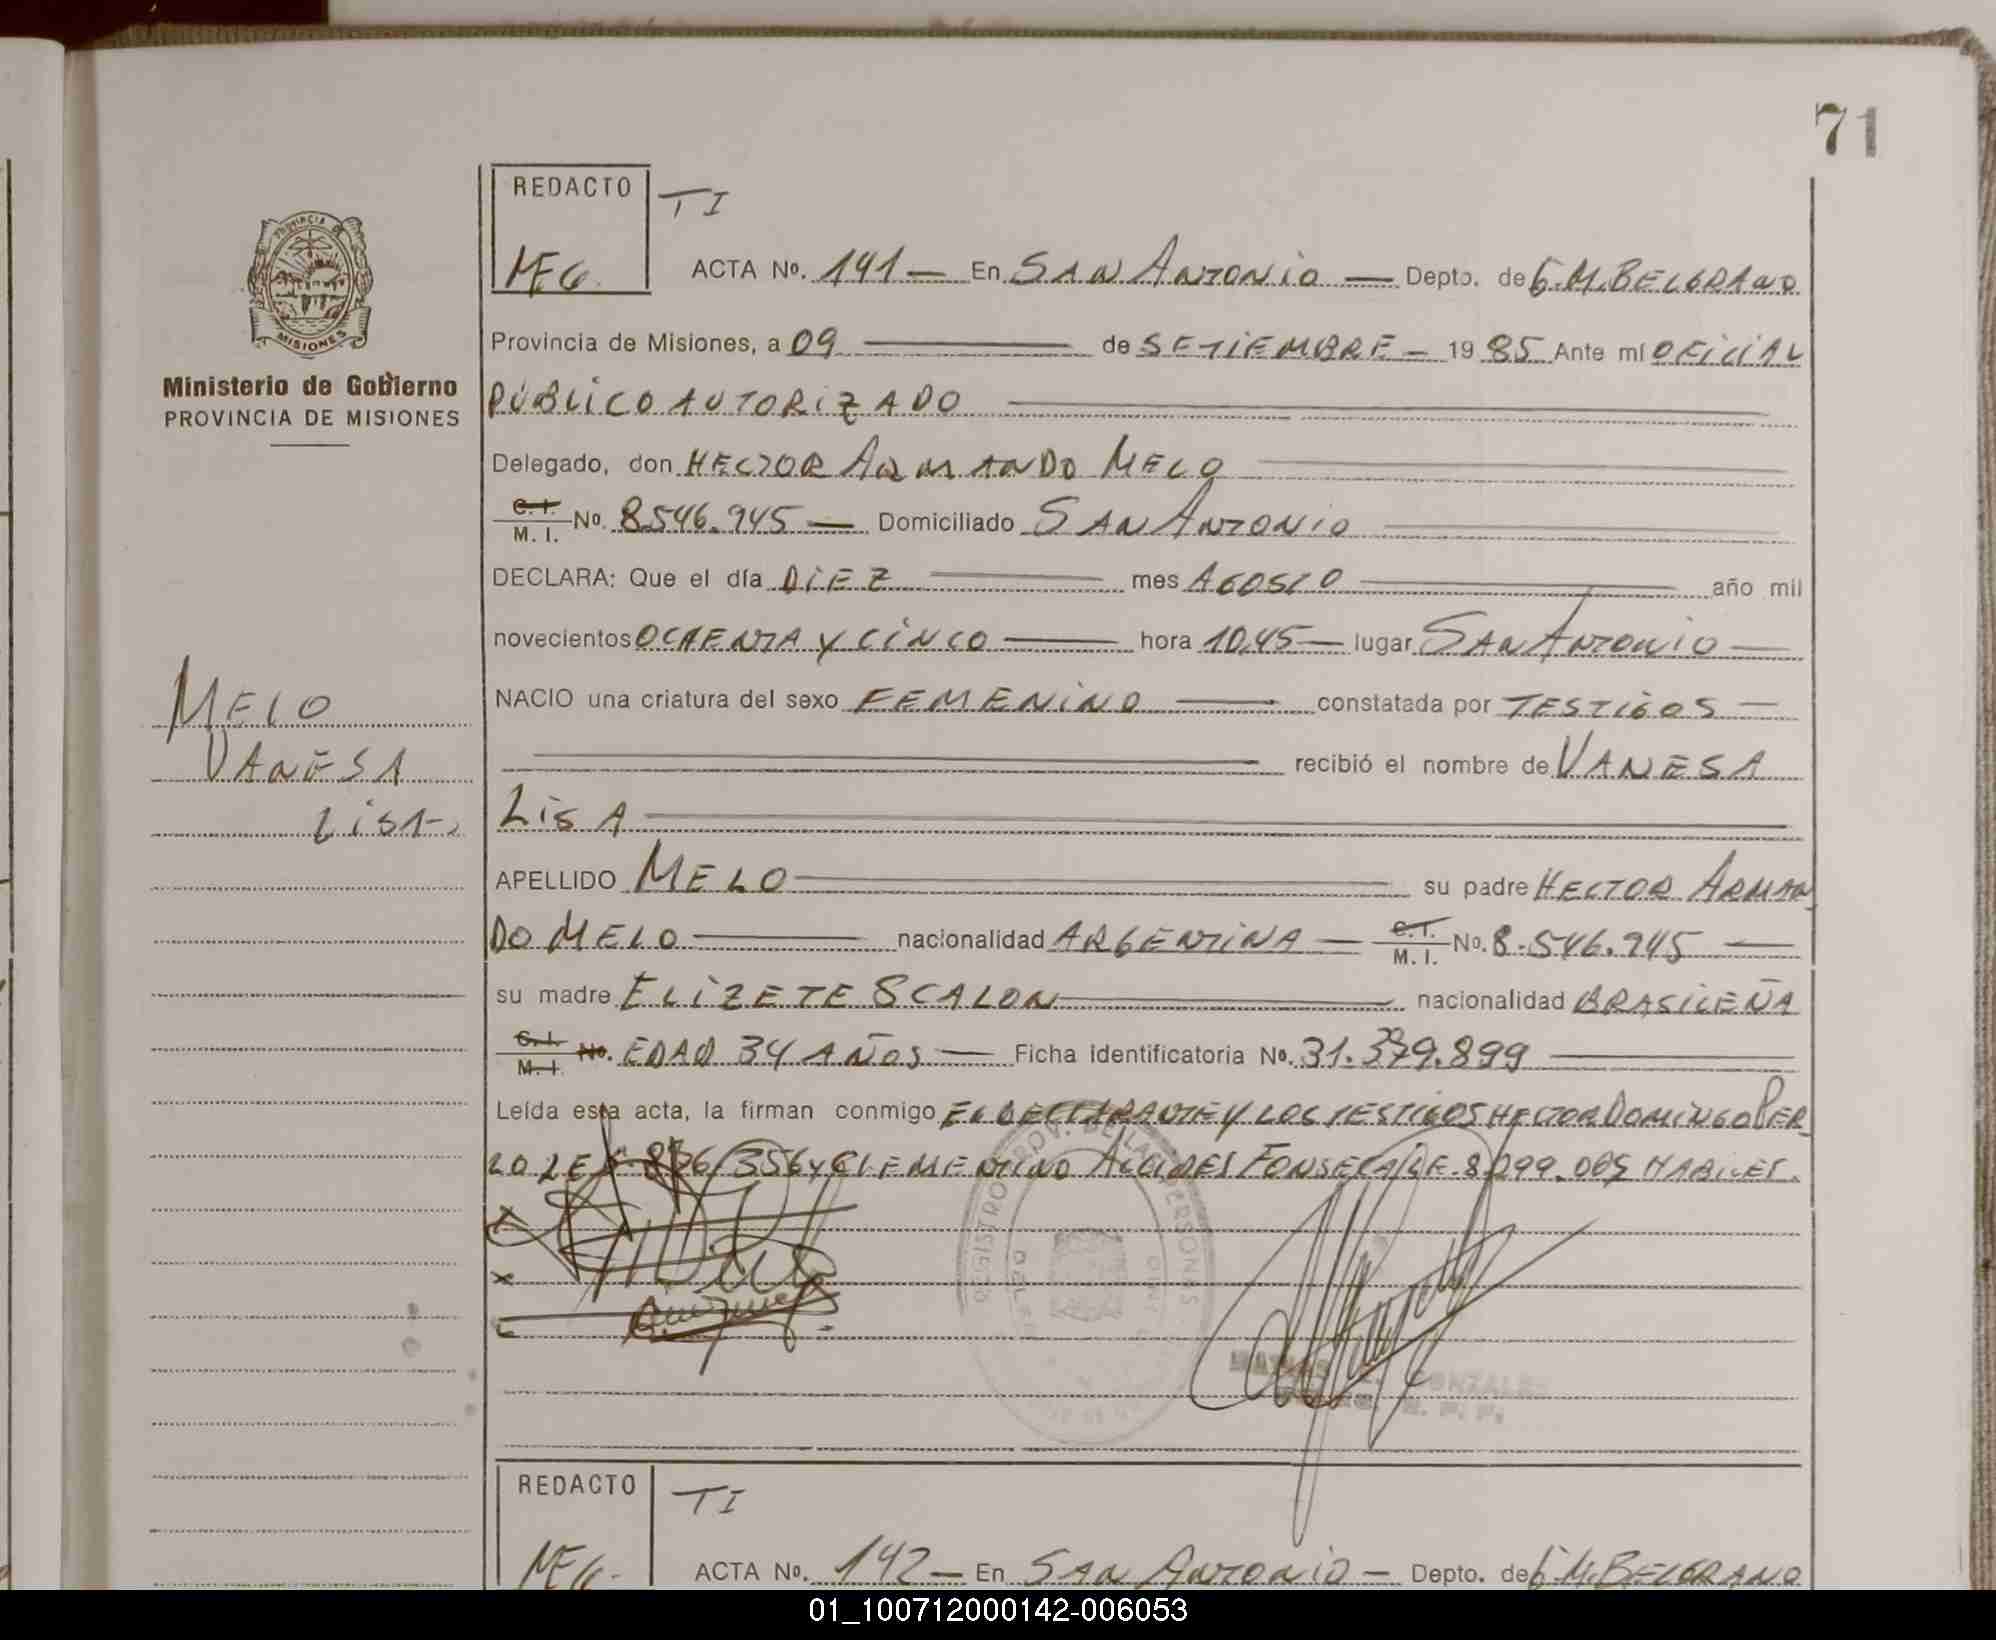 71
REDACTO TI
MEG. ACTA No. 141 — En SAN ANTONIO — Depto. de G.M.BELGRANO
PROVINCIA DE MISIONES
Ministerio de Gobierno
PROVINCIA DE MISIONES
Provincia de Misiones, a 09 — de SETIEMBRE — 19 85 Ante mí OFICIAL
PÚBLICO AUTORIZADO
Delegado, don HECTOR ARMANDO MELO
C. I. M. I. No. 8.546.945 — Domiciliado SAN ANTONIO
DECLARA: Que el día DIEZ mes AGOSTO año mil
novecientos OCHENTA Y CINCO — hora 10,45 — lugar SAN ANTONIO —
NACIO una criatura del sexo FEMENINO — constatada por TESTIGOS —
recibió el nombre de VANESA
LISA
MELO
VANESA
LISA-
APELLIDO MELO su padre HECTOR ARMAN
DO MELO — nacionalidad ARGENTINA — C. I. M. I. No. 8.546.945 —
su madre ELIZETE SCALON nacionalidad BRASILEÑA
C. I. M. I. No. EDAD 34 AÑOS — Ficha identificatoria No. 31.379.899
Leída esta acta, la firman conmigo EL DECLARANTE Y LOS TESTIGOS HECTOR DOMINGO PER
CLEMENTINO ALCIDES FONSECA LE. 8.299.065 HABILES.
REGISTRO PROV. DE LAS PERSONAS
GONZALEZ
REDACTO TI
MEG.- ACTA No. 142 — En SAN ANTONIO — Depto. de G.M.BELGRANO
01_100712000142-006053